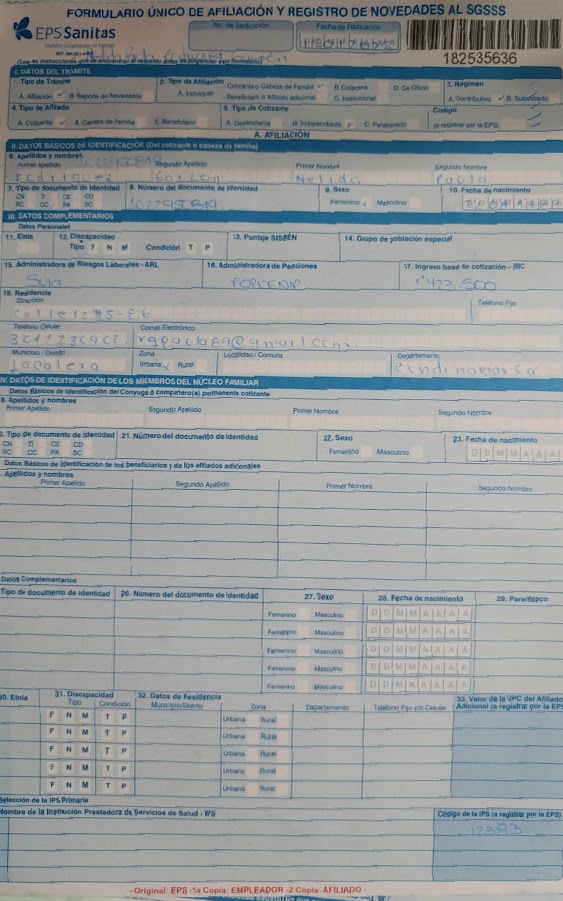 FORMULARIO ÚNICO DE AFILIACIÓN Y REGISTRO DE NOVEDADES AL SGSSS
EPS Sanitas
No. de Radicación
Fecha de Radicación
182535636
I. DATOS DEL TRÁMITE
1. Tipo de Trámite
A. Afiliación B. Reporte de Novedades
2. Tipo de Afiliación
A. Individual
Cotizante o Cabeza de Familia
Beneficiario o Afiliado adicional
B. Colectiva
C. Institucional
D. De Oficio
3. Régimen
A. Contributivo B. Subsidiado
4. Tipo de Afiliado
A. Cotizante B. Cabeza de Familia C. Beneficiario
5. Tipo de Cotizante
A. Dependiente B. Independiente C. Pensionado
Código
(a registrar por la EPS)
A. AFILIACIÓN
II. DATOS BÁSICOS DE IDENTIFICACIÓN (Del cotizante o cabeza de familia)
6. Apellidos y nombres
Primer Apellido Segundo Apellido Primer Nombre Segundo Nombre
Rodriguez Nelida Paola
7. Tipo de documento de identidad
CN TI CE CD
RC CC PA SC
8. Número del documento de identidad
9. Sexo
Femenino Masculino
10. Fecha de nacimiento
III. DATOS COMPLEMENTARIOS
Datos Personales
11. Etnia
12. Discapacidad
Tipo F N M Condición T P
13. Puntaje SISBÉN
14. Grupo de población especial
15. Administradora de Riesgos Laborales - ARL
Sura
16. Administradora de Pensiones
PORVENIR
17. Ingreso base de cotización - IBC
1'423.500
18. Residencia
Dirección
Teléfono Fijo
Calle 12 #5-86
Teléfono Celular
Correo Electrónico
Municipio / Distrito
Zona
Localidad / Comuna
Departamento
Urbana Rural
La calera
Cundinamarca
IV. DATOS DE IDENTIFICACIÓN DE LOS MIEMBROS DEL NÚCLEO FAMILIAR
Datos Básicos de Identificación del Cónyuge o compañero(a) permanente cotizante
9. Apellidos y nombres
Primer Apellido Segundo Apellido Primer Nombre Segundo Nombre
. Tipo de documento de identidad
CN TI CE CD
RC CC PA SC
21 Número del documento de identidad
22. Sexo
Femenino Masculino
23. Fecha de nacimiento
D D M M A A A A
Datos Básicos de Identificación de los beneficiarios y de los afiliados adicionales
. Apellidos y nombres
Primer Apellido Segundo Apellido Primer Nombre Segundo Nombre
Datos Complementarios
Tipo de documento de identidad
26. Número del documento de identidad
27. Sexo
28. Fecha de nacimiento
29. Parentesco
Femenino Masculino D D M M A A A A
Femenino Masculino D D M M A A A A
Femenino Masculino D D M M A A A A
Femenino Masculino D D M M A A A A
Femenino Masculino D D M M A A A A
30. Etnia
31. Discapacidad
Tipo Condición
32. Datos de Residencia
Municipio/Distrito Zona Departamento Teléfono Fijo y/o Celular
33. Valor de la UPC del Afiliado
Adicional (a registrar por la EPS
F N M T P Urbana Rural
F N M T P Urbana Rural
F N M T P Urbana Rural
F N M T P Urbana Rural
F N M T P Urbana Rural
Selección de la IPS Primaria
Nombre de la Institución Prestadora de Servicios de Salud - IPS
Código de la IPS (a registrar por la EPS)
12383
- Original: EPS -1a Copia: EMPLEADOR -2 Copia: AFILIADO -